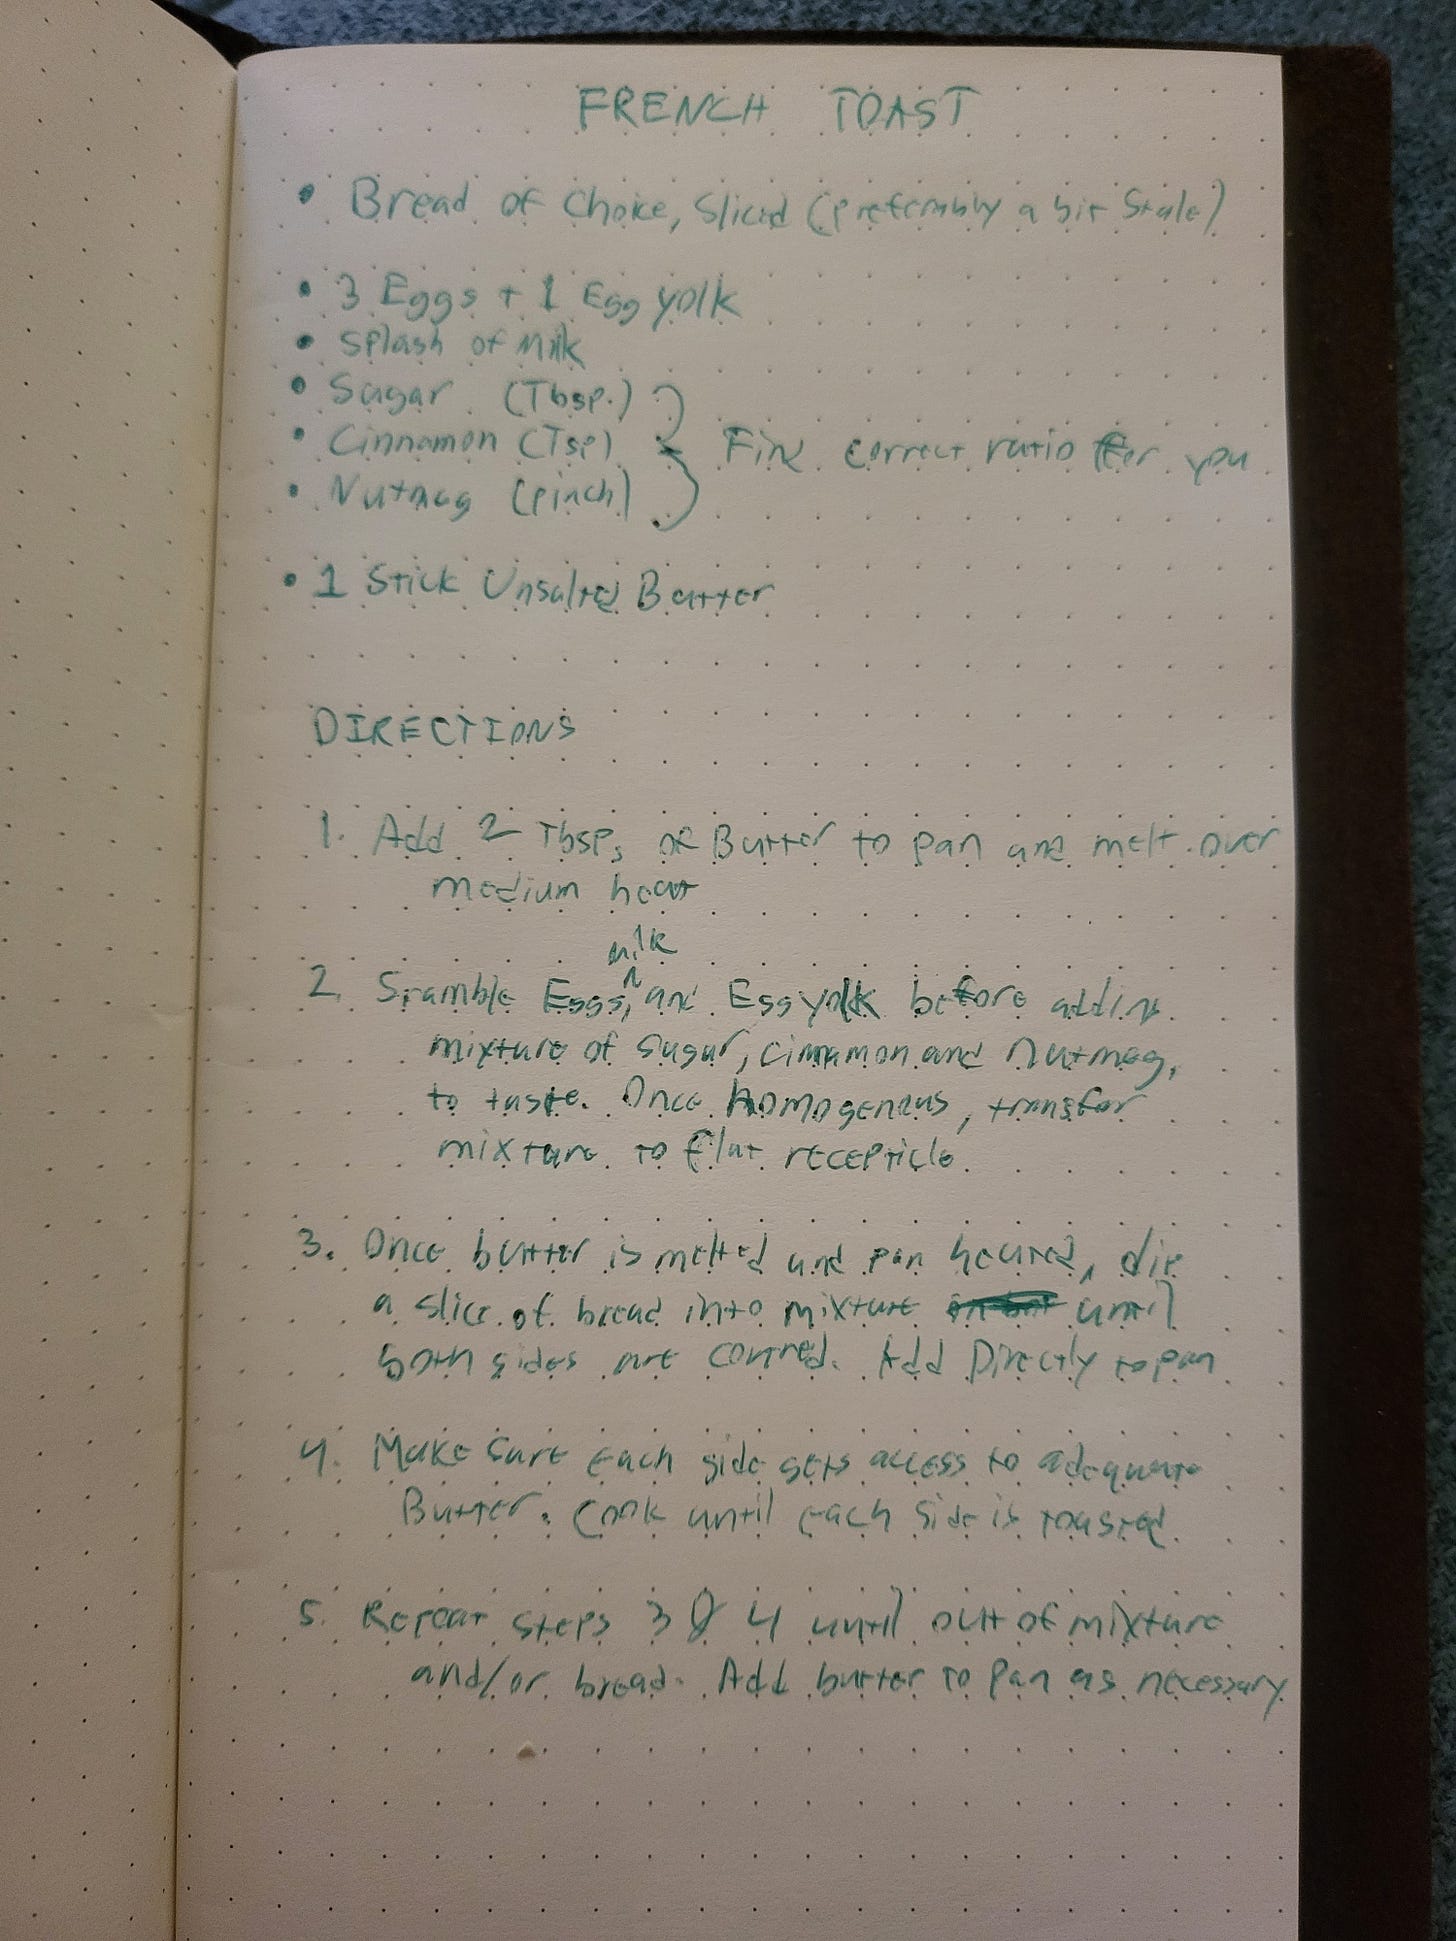 FRENCH TOAST
• Bread of Choice, Sliced (preferably a bit Stale)
• 3 Eggs + 1 Egg yolk
• Splash of Milk
• Sugar (Tbsp.)
• Cinnamon (Tsp) Find correct ratio for you
• Nutmeg (pinch)
• 1 Stick Unsalted Butter
DIRECTIONS
1. Add 2 Tbsps of Butter to pan and melt over
medium heat
milk
2. Scramble Eggs, and Egg yolk before adding
mixture of Sugar, cinnamon and Nutmeg,
to taste. Once homogenous, transfer
mixture to flat recepticle.
3. Once butter is melted and pan heated, dip
a slice of bread into mixture until
both sides are covered. Add Directly to pan
4. Make sure each side gets access to adequate
Butter. Cook until each side is toasted.
5. Repeat steps 3 & 4 until out of mixture
and/or bread. Add butter to pan as necessary.